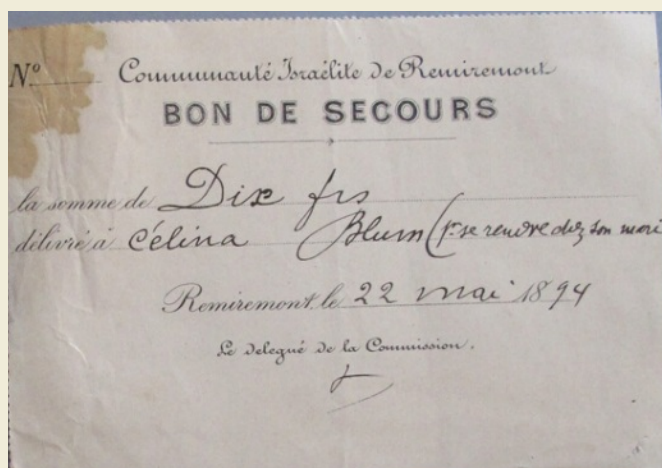 N°
Communauté Israélite de Remiremont
BON DE SECOURS
la somme de Dix frs
délivré à Célina Blum (pr se rendre chez son mari
Remiremont, le 22 mai 1894
Le délégué de la Commission.